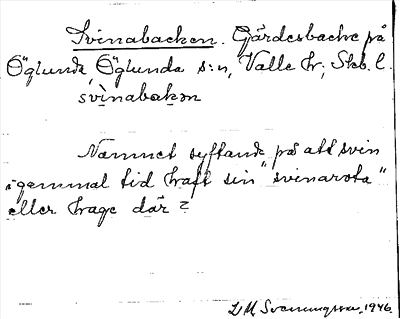 Svinabacken. Gärdesbacke på
Öglunda, Öglunda s:n, Valle hr; Skb. l.
svìnabakən
Namnet syftande på att svin
i gammal tid haft sin "svinarota"
eller hage där?
L M Svenningsson, 1946.